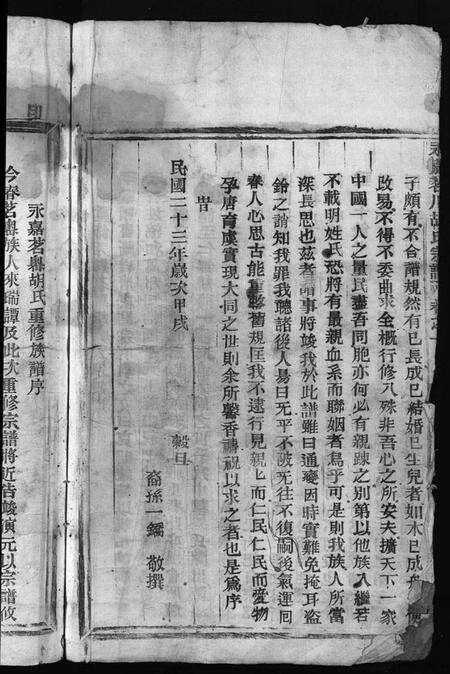 永嘉茗川胡氏宗譜
子頗有不合譜規然有已長成已結婚已生兒者如木已成舟便
改易不得不委曲求全概行修入殊非吾心之所安夫擴天下一家
中國一人之量民盡吾同胞亦何必有親踈之別第以他族入繼若
不載明姓氏恐將有最親血系而聯姻者烏乎可是則我族人所當
深長思也茲者譜事將竣我於此譜雖曰通變因時實難免掩耳盜
鈴之誚知我罪我聽諸後人易曰无平不陂无往不復嗣後氣運囘
春人心思古能重夥舊規匡我不逮行見親上而仁民仁民而愛物
孕唐育虞實現大同之世則余所馨香禱祝以求之者也是爲序
旹
民國二十三年歲次甲戌
穀旦
裔孫一鏞 敬撰
印
永嘉茗嶴胡氏重修族譜序
今春茗嶴族人來瑞譚及此次重修宗譜將近告竣演元以宗譜攸